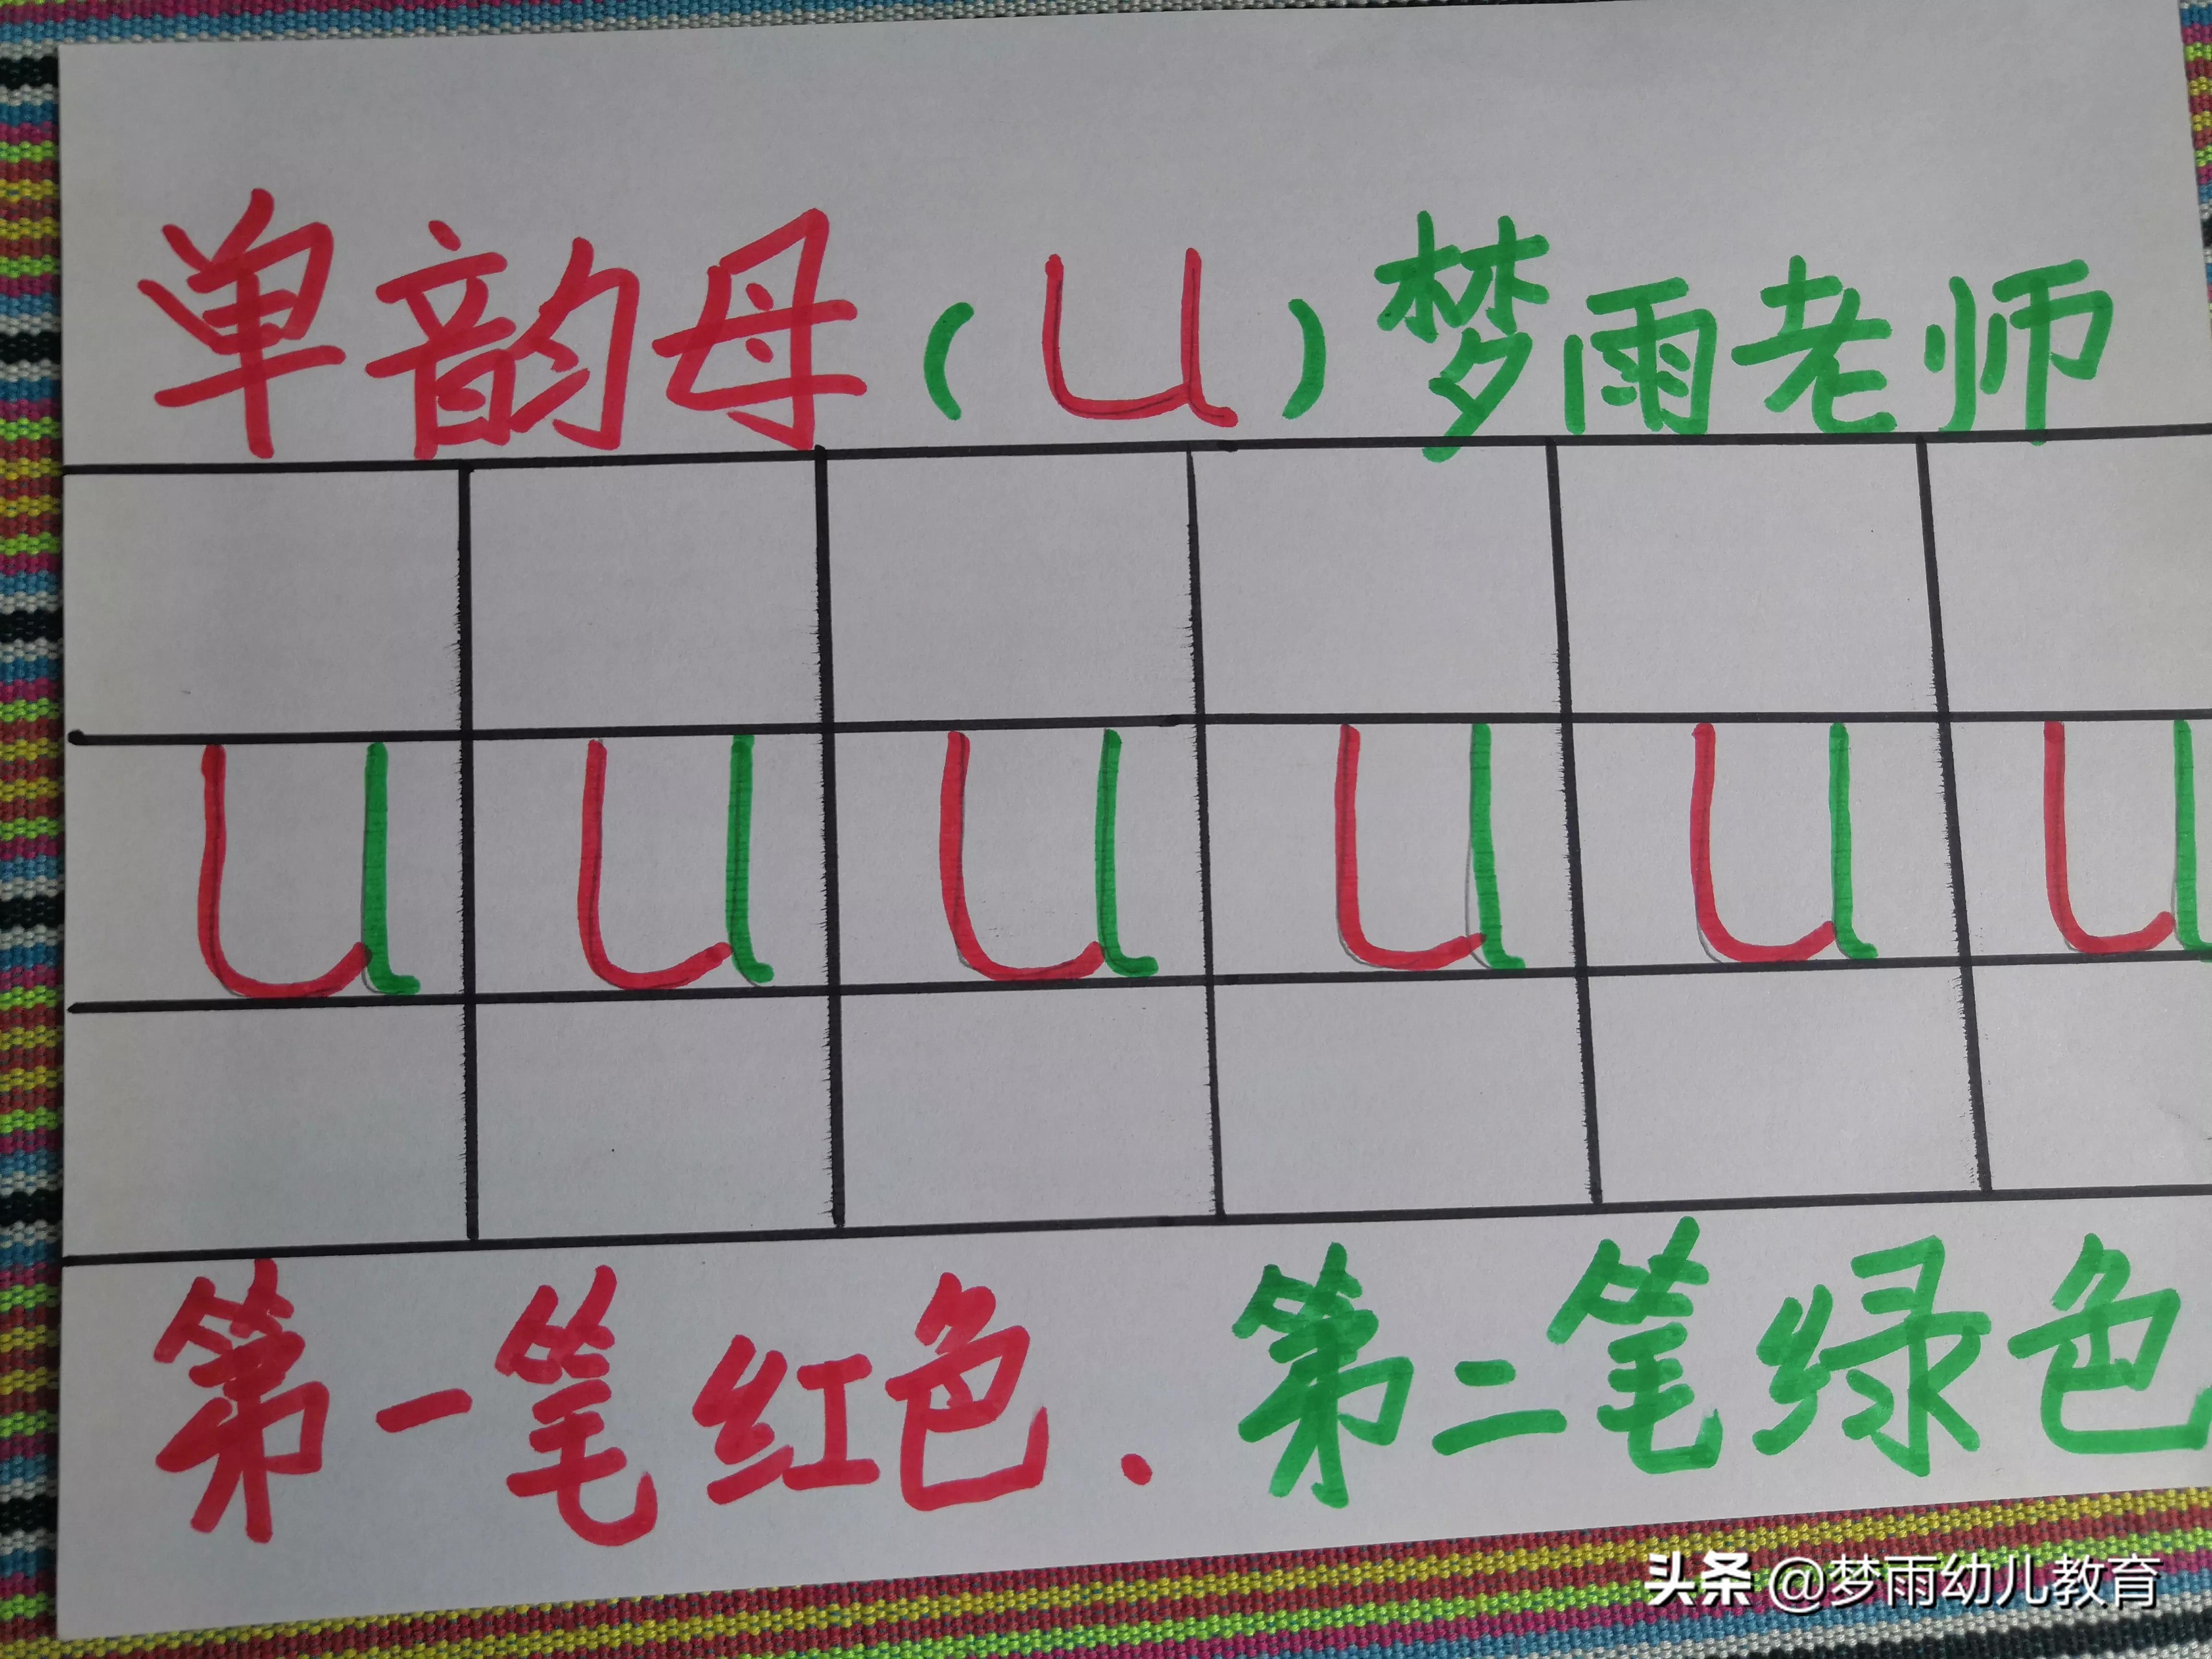 单韵母（u）梦雨老师
u u u u u u
第一笔红色.第二笔绿色
头条 @梦雨幼儿教育